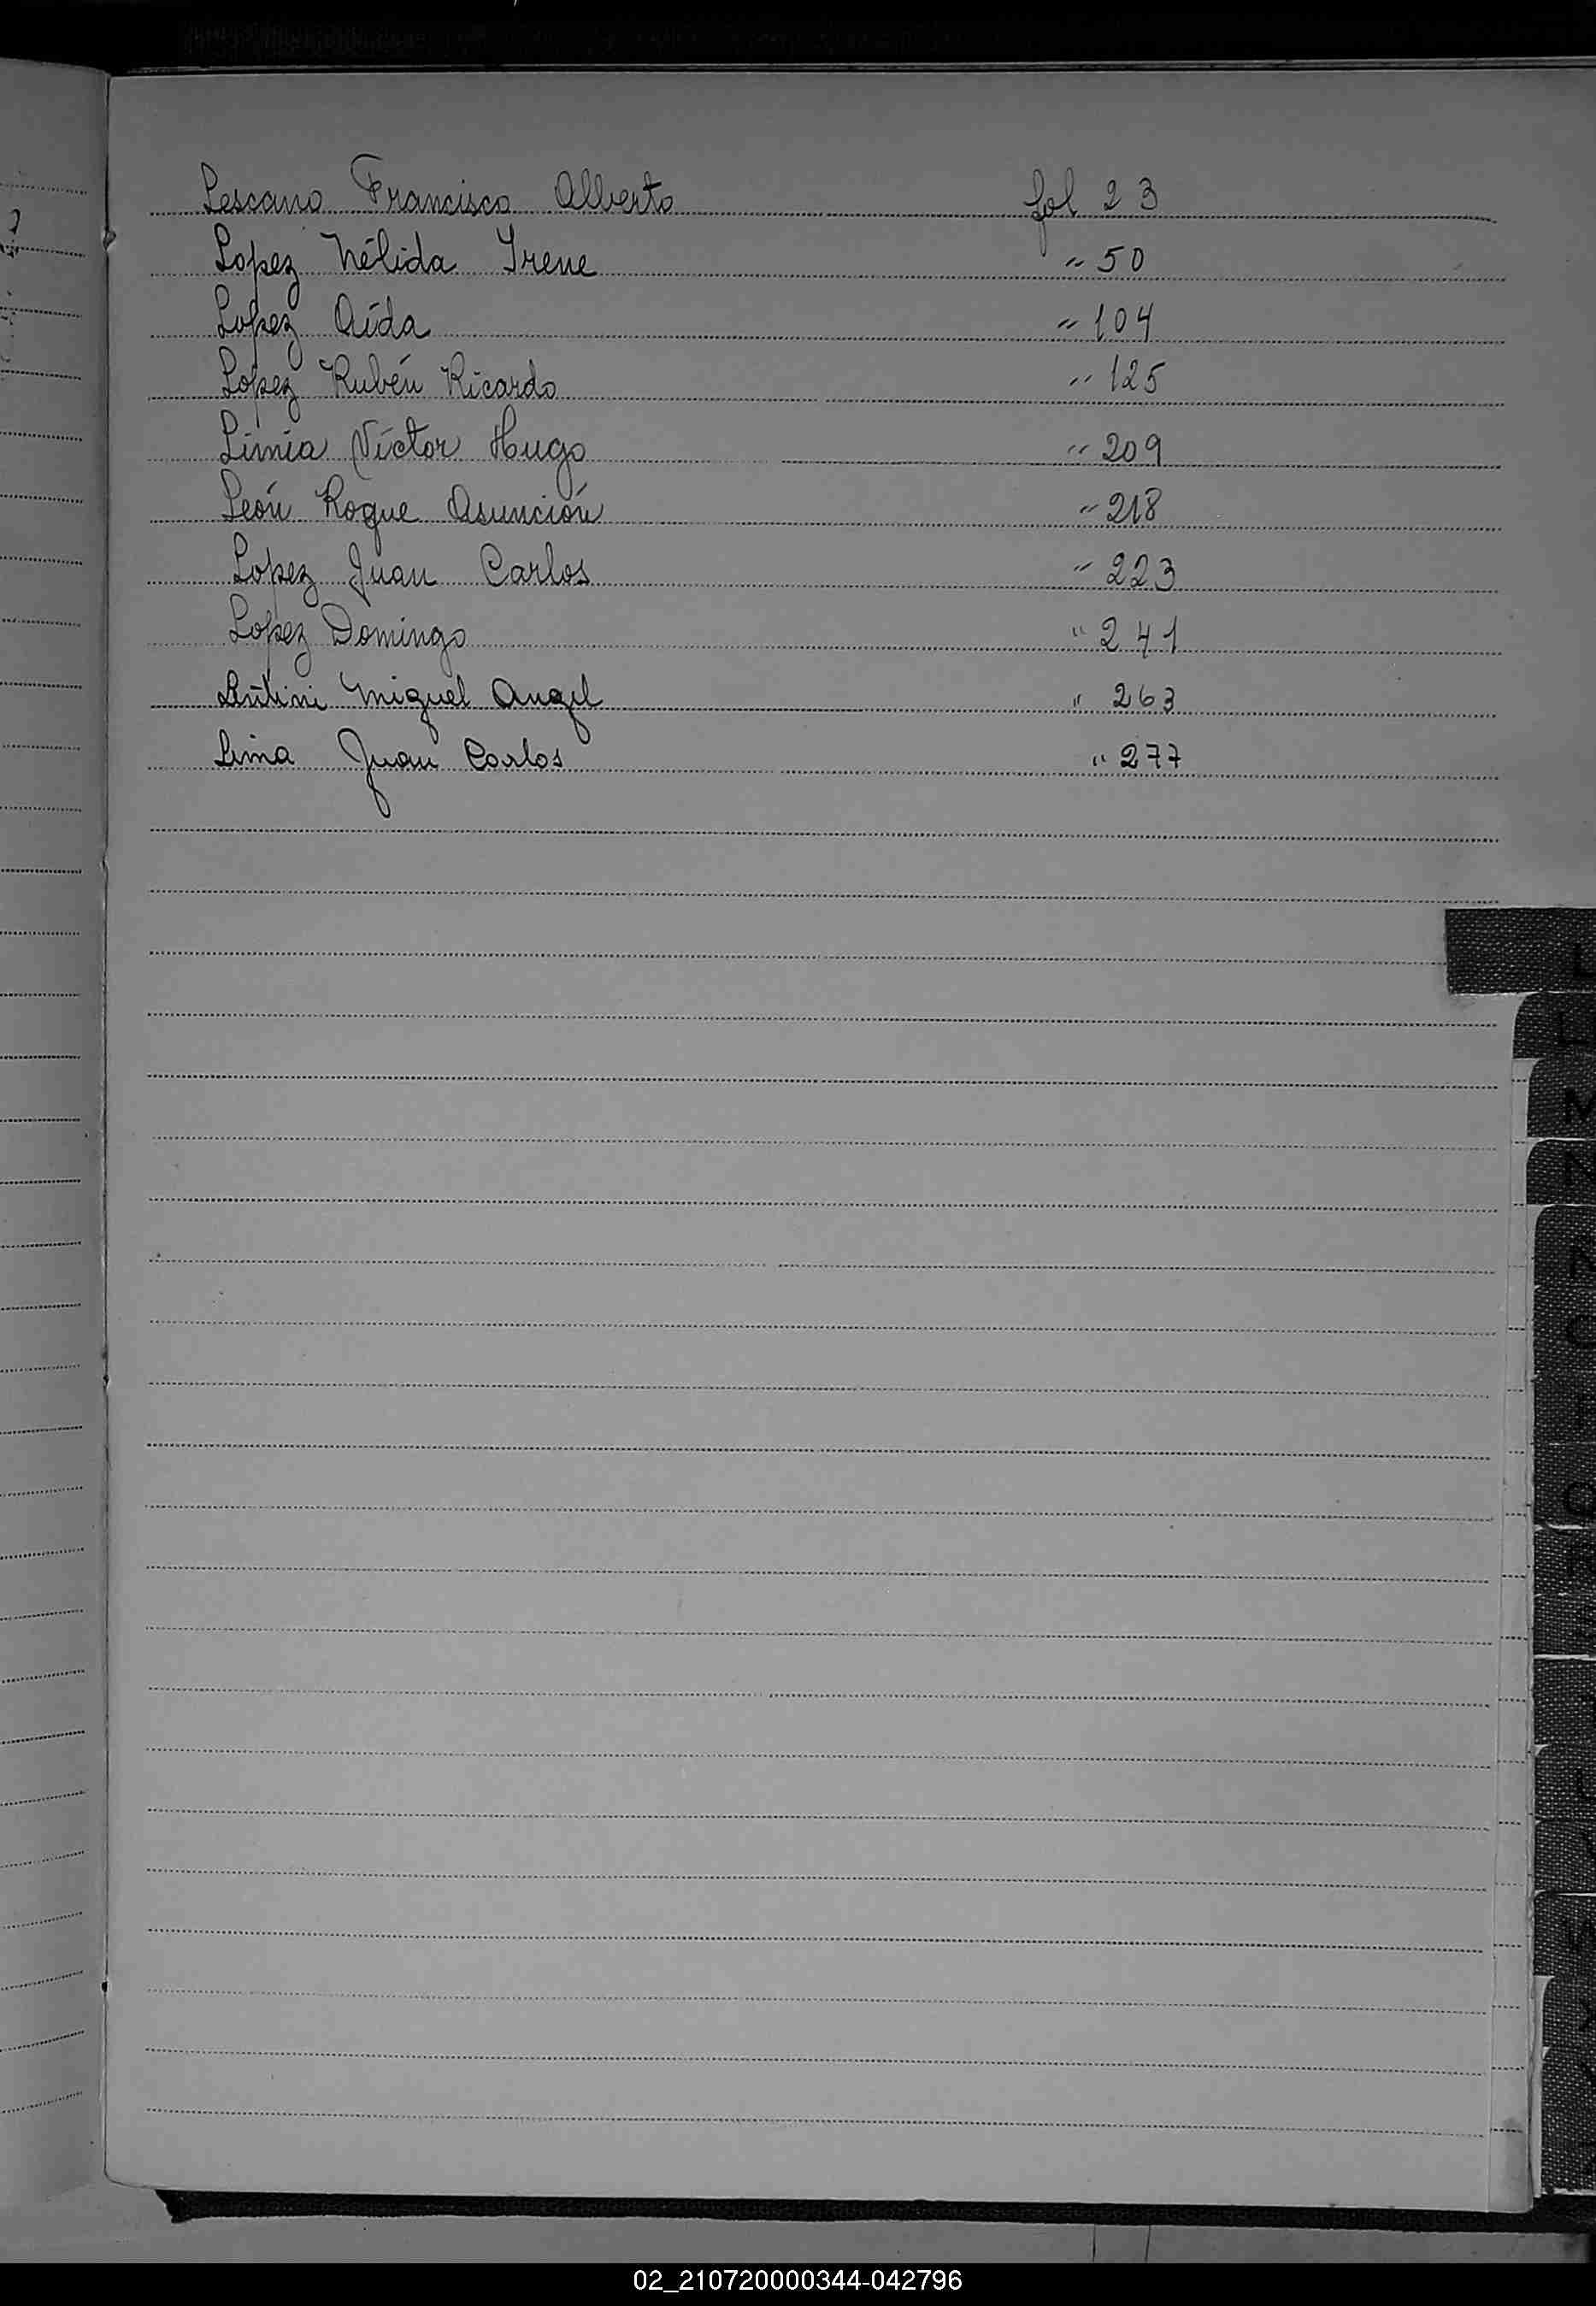 Lescano Francisco Alberto fol 23
Lopez Nélida Irene " 50
Lopez Aída " 104
Lopez Rubén Ricardo " 125
Limia Víctor Hugo " 209
León Roque Asunción " 218
Lopez Juan Carlos " 223
Lopez Domingo " 241
Miguel Angel " 263
Lima Juan Carlos " 277
L
L
M
N
02_210720000344-042796